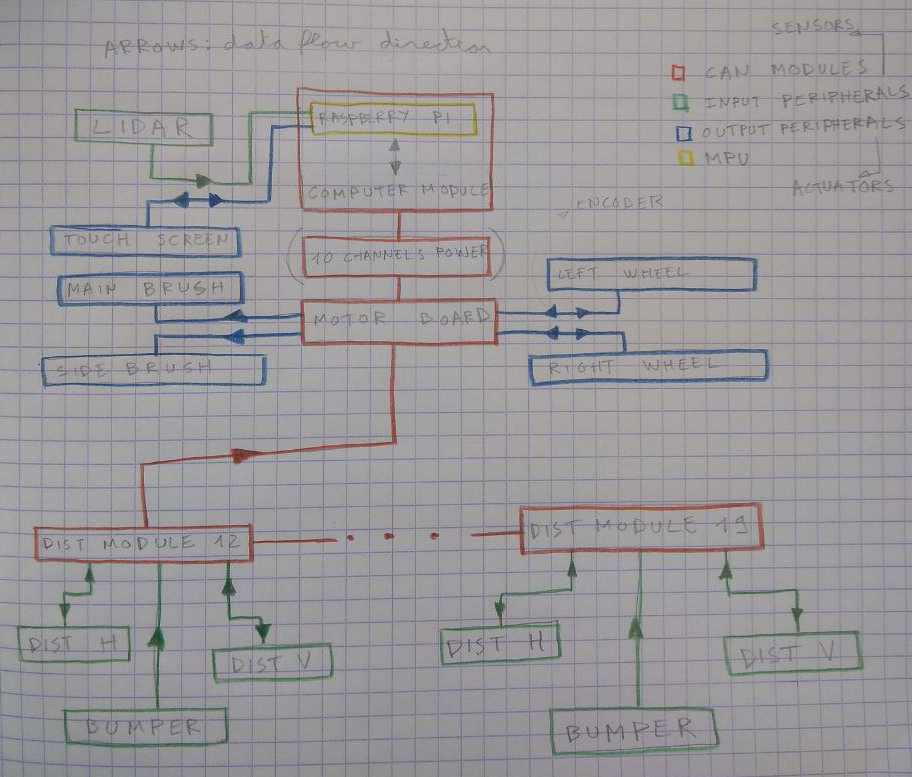 SENSORS
ARROWS: data flow direction
CAN MODULES
INPUT PERIPHERALS
OUTPUT PERIPHERALS
MPU
ACTUATORS
LIDAR
RASPBERRY PI
COMPUTER MODULE
ENCODER
TOUCH SCREEN
(10 CHANNELS POWER)
LEFT WHEEL
MAIN BRUSH
MOTOR BOARD
SIDE BRUSH
RIGHT WHEEL
DIST MODULE 12
DIST MODULE 19
DIST H
DIST V
DIST H
DIST V
BUMPER
BUMPER